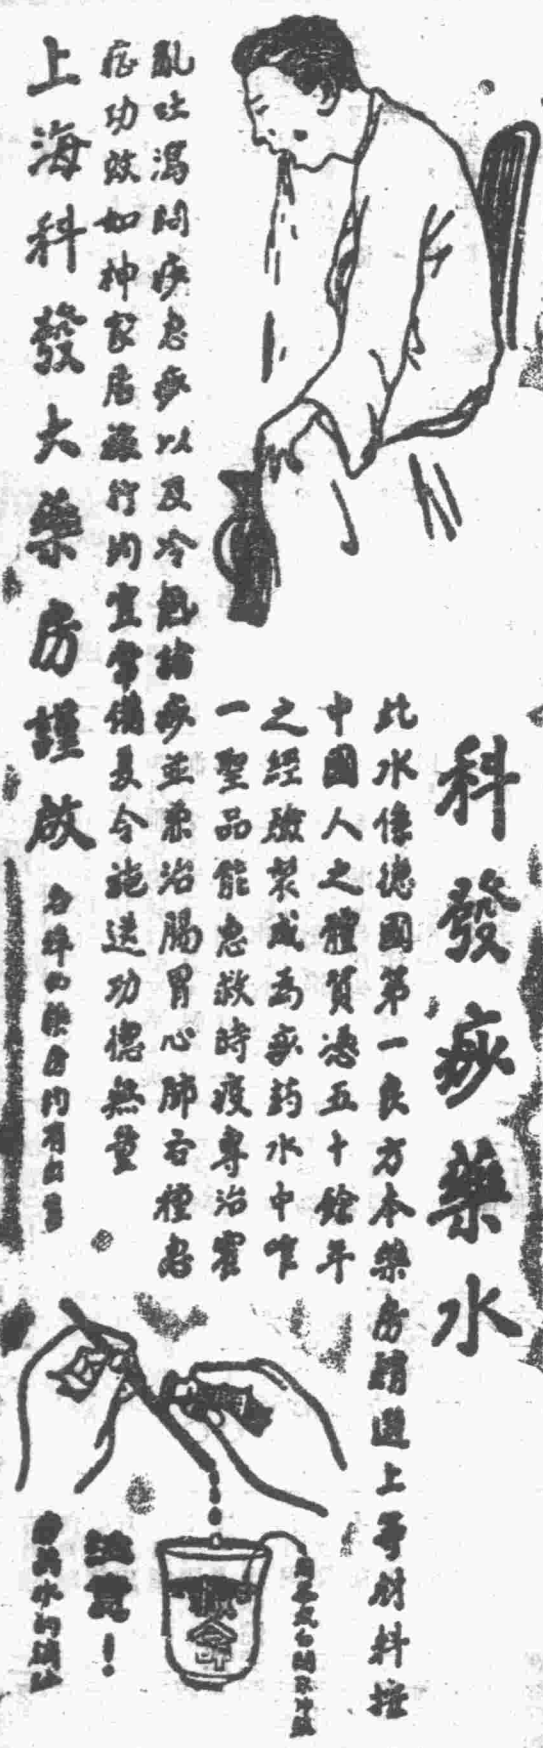 科發痧藥水
此水係德國第一良方本藥房精選上等材料按
中國人之體質憑五十餘年
之經驗製成為痧葯水中唯
一聖品能急救時疫專治霍
亂吐瀉悶痧急痧以及冷熱諸痧並兼治腸胃心肺各種急
症功效如神家居旅行均宜常備夏令施送功德無量
上海科發大藥房謹啟
各埠西藥房均有出售
注意！
救命